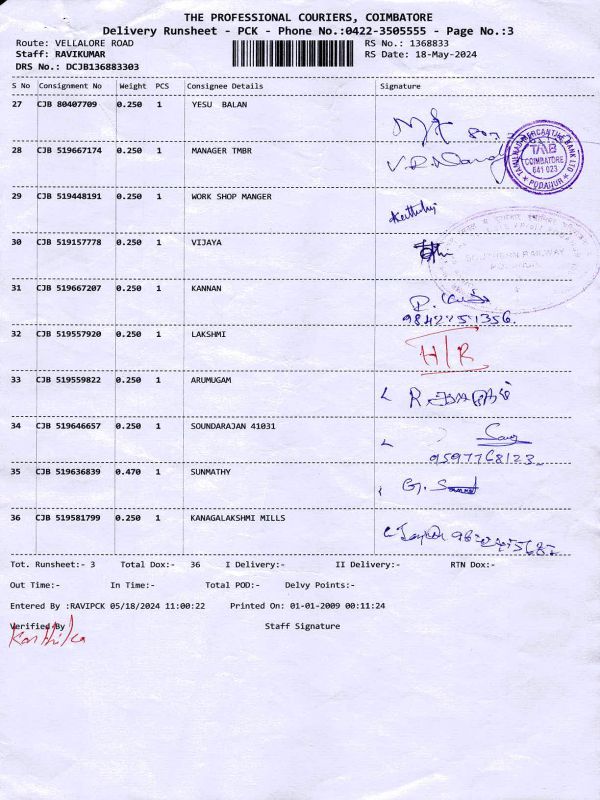 THE PROFESSIONAL COURIERS, COIMBATORE
Delivery Runsheet - PCK - Phone No.:0422-3505555 - Page No.:3
Route: VELLALORE ROAD
RS No.: 1368833
Staff: RAVIKUMAR
RS Date: 18-May-2024
DRS No.: DCJB136883303
S No Consignment No Weight PCS Consignee Details Signature
27 CJB 80407709 0.250 1 YESU BALAN
28 CJB 519667174 0.250 1 MANAGER TMBR
TAMILNAD MERCANTILE BANK LTD
TMB
COIMBATORE
641 023
★ PODANUR ★
29 CJB 519448191 0.250 1 WORK SHOP MANGER
30 CJB 519157778 0.250 1 VIJAYA
SOUTHERN RAILWAY
31 CJB 519667207 0.250 1 KANNAN
9842251356.
32 CJB 519557920 0.250 1 LAKSHMI
H/R
33 CJB 519559822 0.250 1 ARUMUGAM
R.
34 CJB 519646657 0.250 1 SOUNDARAJAN 41031
9597768123
35 CJB 519636839 0.470 1 SUNMATHY
36 CJB 519581799 0.250 1 KANAGALAKSHMI MILLS
Tot. Runsheet:- 3 Total Dox:- 36 I Delivery:- II Delivery:- RTN Dox:-
Out Time:- In Time:- Total POD:- Delvy Points:-
Entered By :RAVIPCK 05/18/2024 11:00:22 Printed On: 01-01-2009 00:11:24
Verified By Staff Signature
Karthika